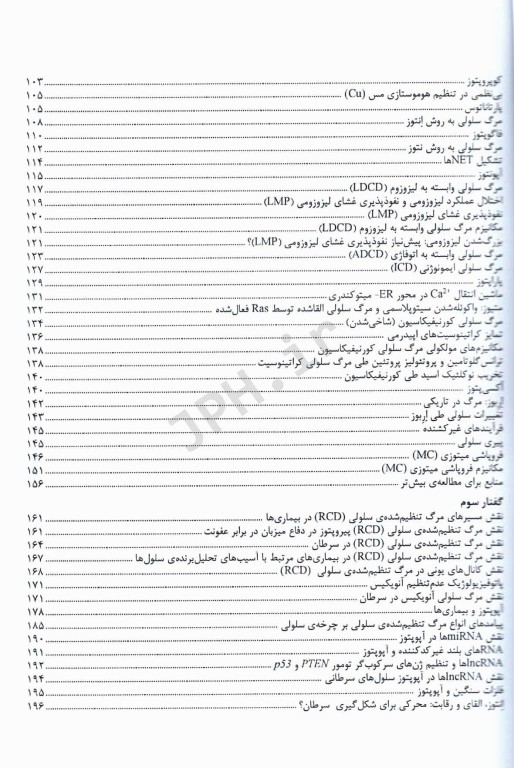 کوپروپتوز ... ۱۰۳
بی‌نظمی در تنظیم هوموستازی مس (Cu) ... ۱۰۵
پارتاناتوس ... ۱۰۵
مرگ سلولی به روش اِنتوز ... ۱۰۸
فاگوپتوز ... ۱۱۰
مرگ سلولی به روش نتوز ... ۱۱۲
تشکیل NETها ... ۱۱۴
آپونتوز ... ۱۱۵
مرگ سلولی وابسته به لیزوزوم (LDCD) ... ۱۱۷
اختلال عملکرد لیزوزومی و نفوذپذیری غشای لیزوزومی (LMP) ... ۱۱۹
نفوذپذیری غشای لیزوزومی (LMP) ... ۱۲۰
مکانیزم مرگ سلولی وابسته به لیزوزوم (LDCD) ... ۱۲۱
بزرگ‌شدن لیزوزومی: پیش‌نیاز نفوذپذیری غشای لیزوزومی (LMP)؟ ... ۱۲۱
مرگ سلولی وابسته به اتوفاژی (ADCD) ... ۱۲۳
مرگ سلولی ایمونوژنی (ICD) ... ۱۲۷
پاراپتوز ... ۱۲۹
ماشین انتقال Ca²⁺ در محور ER- میتوکندری ... ۱۳۱
متیوز: واکوئله‌شدن سیتوپلاسمی و مرگ سلولی القاشده توسط Ras فعال‌شده ... ۱۳۲
مرگ سلولی کورنیفیکاسیون (شاخی‌شدن) ... ۱۳۴
تمایز کراتینوسیت‌های اپیدرمی ... ۱۳۶
مکانیزم‌های مولکولی مرگ سلولی کورنیفیکاسیون ... ۱۳۸
ترانس‌گلوتامین و پروتئولیز پروتئین طی مرگ سلولی کراتینوسیت ... ۱۳۸
تخریب نوکلئیک اسید طی کورنیفیکاسیون ... ۱۴۰
آکسی‌پتوز ... ۱۴۰
اِربوز: مرگ در تاریکی ... ۱۴۲
تغییرات سلولی طی اِربوز ... ۱۴۳
فرآیندهای غیرکشنده ... ۱۴۵
پیری سلولی ... ۱۴۵
فروپاشی میتوزی (MC) ... ۱۴۶
مکانیزم فروپاشی میتوزی (MC) ... ۱۵۱
منابع برای مطالعه‌ی بیش‌تر ... ۱۵۶
گفتار سوم
نقش مسیرهای مرگ تنظیم‌شده‌ی سلولی (RCD) در بیماری‌ها ... ۱۶۱
نقش مرگ تنظیم‌شده‌ی سلولی (RCD) پیروپتوز در دفاع میزبان در برابر عفونت ... ۱۶۱
نقش مرگ تنظیم‌شده‌ی سلولی (RCD) در سرطان ... ۱۶۴
نقش مرگ تنظیم‌شده‌ی سلولی (RCD) در بیماری‌های مرتبط با آسیب‌های تحلیل‌برنده‌ی سلول‌ها ... ۱۶۷
نقش کانال‌های یونی در مرگ تنظیم‌شده‌ی سلولی (RCD) ... ۱۶۸
پاتوفیزیولوژیک عدم‌تنظیم آنویکیس ... ۱۷۱
نقش مرگ سلولی آنویکیس در سرطان ... ۱۷۱
آپوپتوز و بیماری‌ها ... ۱۷۸
پیامدهای انواع مرگ تنظیم‌شده‌ی سلولی بر چرخه‌ی سلولی ... ۱۸۵
نقش miRNAها در آپوپتوز ... ۱۹۰
RNAهای بلند غیرکدکننده و آپوپتوز ... ۱۹۱
lncRNAها و تنظیم ژن‌های سرکوب‌گر تومور PTEN و p53 ... ۱۹۲
نقش lncRNAها در آپوپتوز سلول‌های سرطانی ... ۱۹۴
فلزات سنگین و آپوپتوز ... ۱۹۵
اِنتوز، القای و رقابت: محرکی برای شکل‌گیری سرطان؟ ... ۱۹۶
JPH.ir